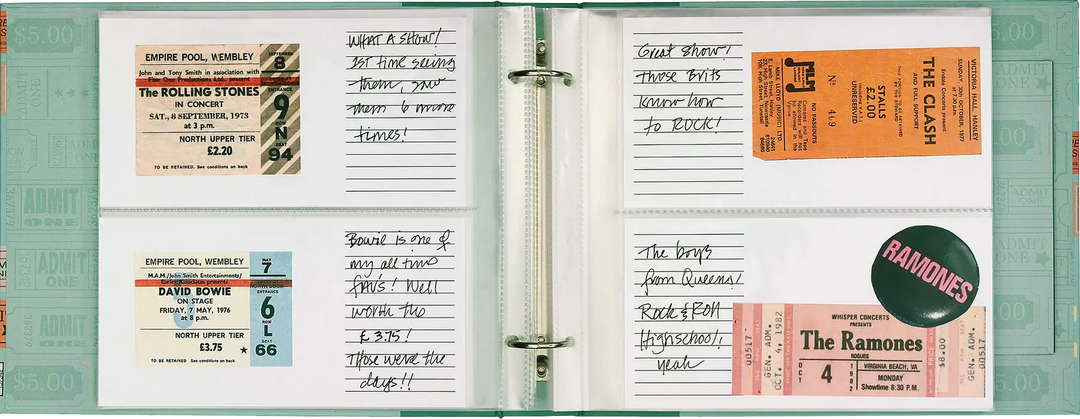 $5.00
ADMIT ONE
ADMIT
ONE
ADMIT
ONE
$5.00
EMPIRE POOL, WEMBLEY
John and Tony Smith in association with
The ROLLING STONES
IN CONCERT
SAT., 8 SEPTEMBER, 1973
at 3 p.m.
NORTH UPPER TIER
£2.20
TO BE RETAINED. See conditions on back
SEPTEMBER
8
ENTRANCE
9
N
SEAT
94
WHAT A SHOW!
1ST time seeing
them, saw
them 6 more
times!
EMPIRE POOL, WEMBLEY
M.A.M./John Smith Entertainments/
DAVID BOWIE
ON STAGE
FRIDAY, 7 MAY, 1976
at 8 p.m.
NORTH UPPER TIER
£3.75
TO BE RETAINED See conditions on back
MAY
7
ENTRANCE
6
ROW
L
SEAT
66
Bowie is one of
my all time
favs! Well
worth the
£3.75!
Those were the
days!!
Great show!
Those Brits
know how
to ROCK!
VICTORIA HALL, HANLEY
SUNDAY, 30th OCTOBER, 1977
at 7.30 p.m.
Endale Concerts present
THE CLASH
AND FULL SUPPORT
STALLS
£2.00
UNRESERVED
NO PASSOUTS
Cameras and Tape
Recorders will not
be allowed in the
Nº 409
MIKE LLOYD (MUSIC) LTD.
The boys
from Queens!
Rock & Roll
Highschool!
yeah
RAMONES
00517
GEN. ADM.
OCT. 4, 1982
WHISPER CONCERTS
PRESENTS
The Ramones
ROGUES
OCT
4
1982
VIRGINIA BEACH, VA
MONDAY
Showtime 8:30 P.M.
$8.00
GEN. ADM.
00517
ADMIT
ONE